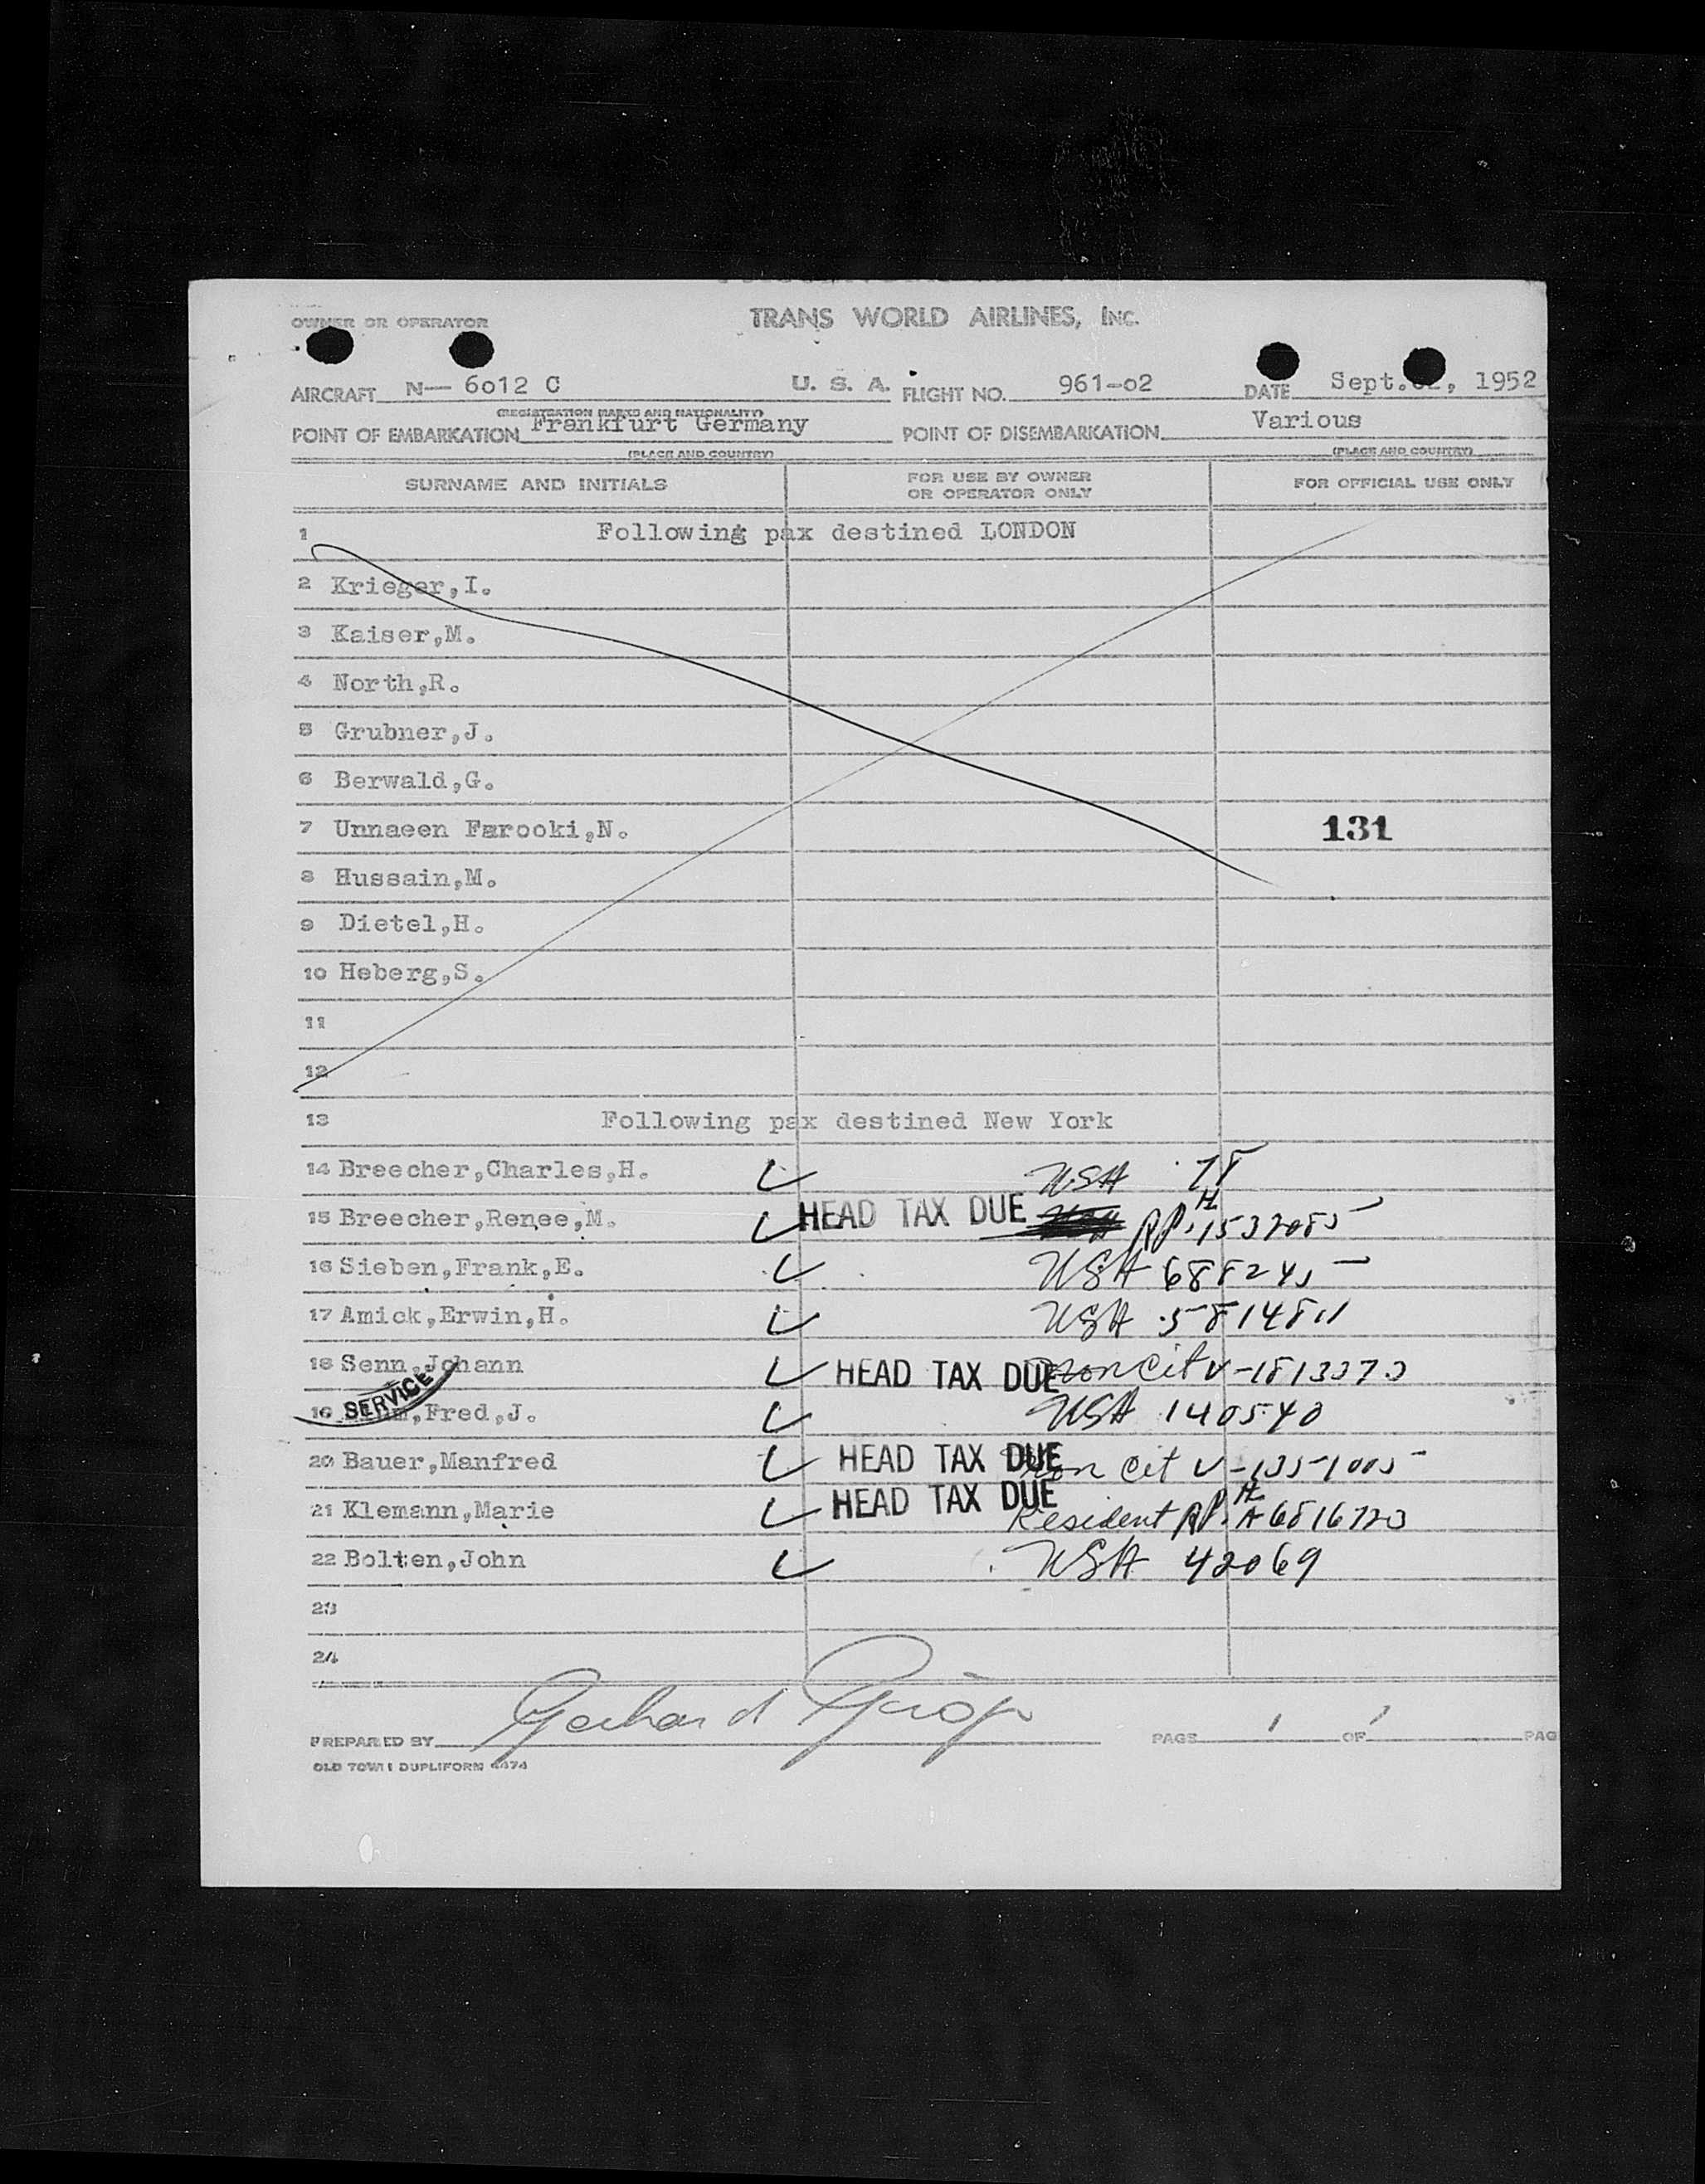 OWNER OR OPERATOR TRANS WORLD AIRLINES, INC.
AIRCRAFT N— 6o12 C U. S. A. FLIGHT NO. 961-o2 DATE Sept. , 1952
(REGISTRATION MARKS AND NATIONALITY)
POINT OF EMBARKATION Frankfurt Germany POINT OF DISEMBARKATION Various
(PLACE AND COUNTRY) (PLACE AND COUNTRY)
SURNAME AND INITIALS FOR USE BY OWNER OR OPERATOR ONLY FOR OFFICIAL USE ONLY
1 Following pax destined LONDON
2 Krieger,I.
3 Kaiser,M.
4 North,R.
5 Grubner,J.
6 Berwald,G.
7 Unnaeen Farooki,N. 131
8 Hussain,M.
9 Dietel,H.
10 Heberg,S.
11
12
13 Following pax destined New York
14 Breecher,Charles,H. USA 78
15 Breecher,Renee,M. HEAD TAX DUE RP.
16 Sieben,Frank,E. USA
17 Amick,Erwin,H. USA 5814811
18 Senn,Johann HEAD TAX DUE non cit V-1813373
SERVICE
19 Fred,J. USA 140540
20 Bauer,Manfred HEAD TAX DUE non cit V-1351005
21 Klemann,Marie HEAD TAX DUE Resident RP. A6816723
22 Bolten,John USA 42069
23
24
PREPARED BY Gerhard PAGE 1 OF 1 PAG
OLD TOWN DUPLIFORM 4474